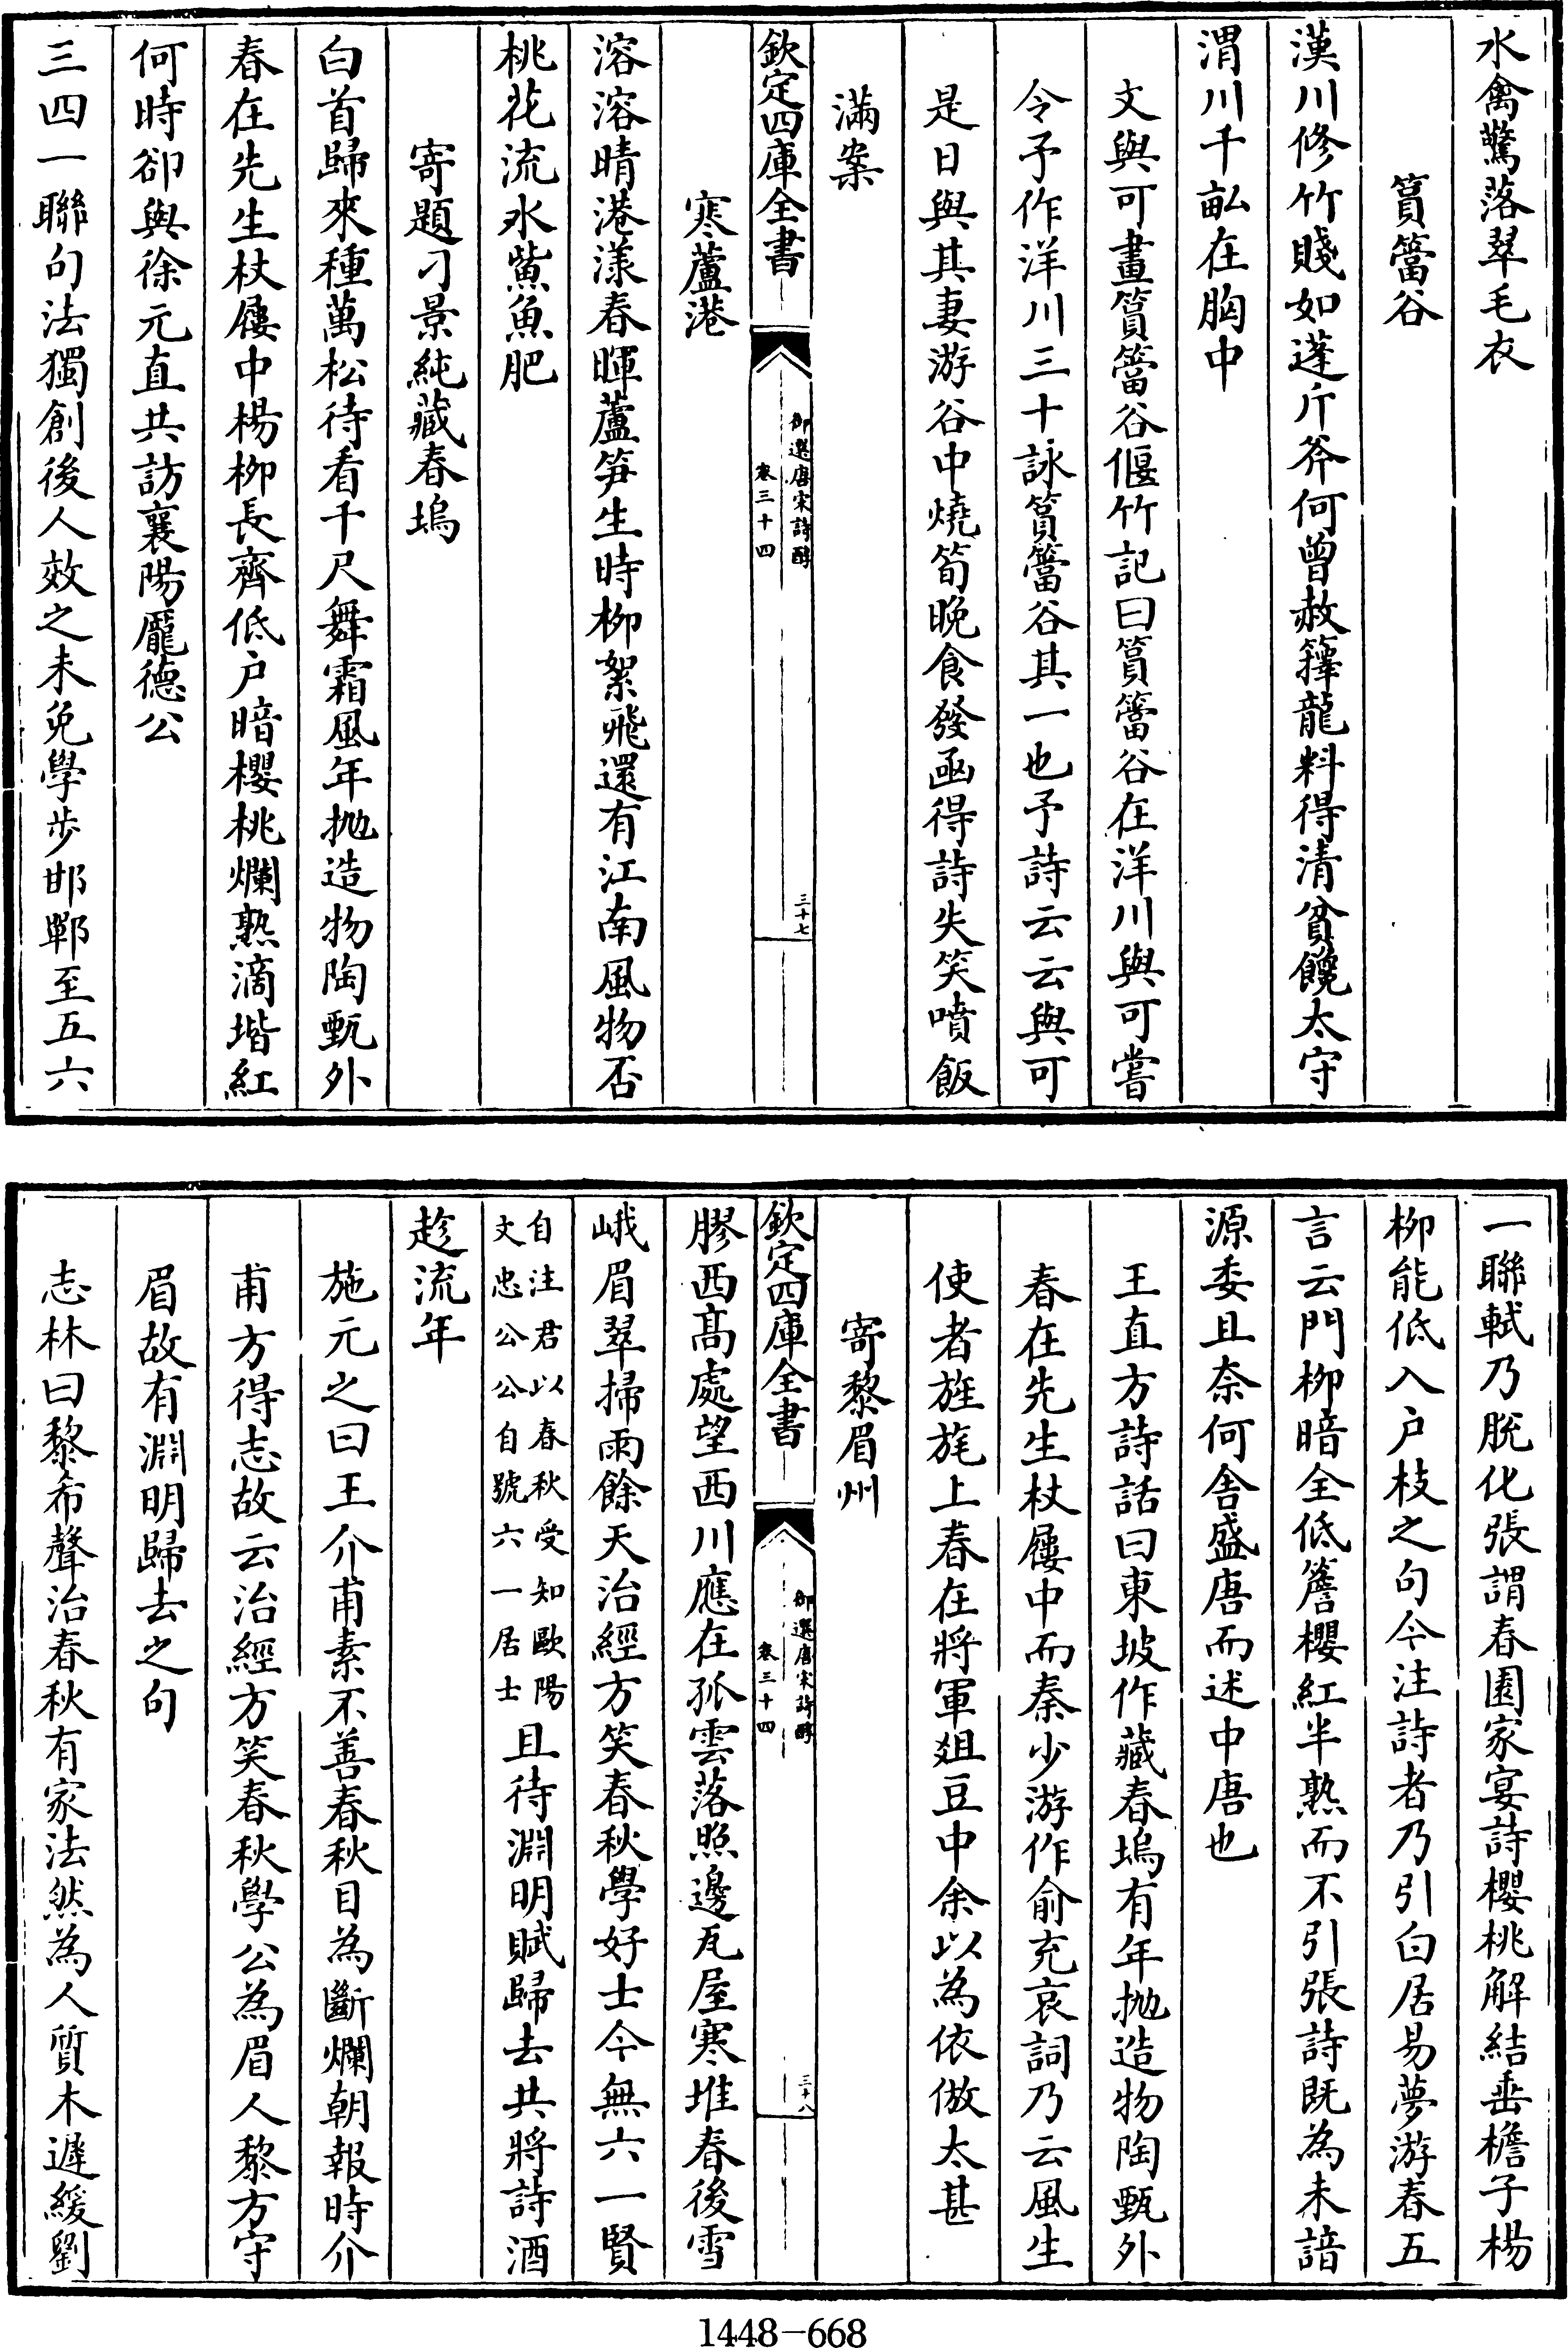 水禽驚落翠毛衣
篔簹谷
漢川修竹賤如蓬斤斧何曾赦籜龍料得清貧饞太守
渭川千畝在胸中
文與可畫篔簹谷偃竹記曰篔簹谷在洋川與可嘗
令予作洋川三十詠篔簹谷其一也予詩云云與可
是日與其妻游谷中燒筍晚食發函得詩失笑噴飯
滿案
欽定四庫全書
御選唐宋詩醇
卷三十四
三十七
寒蘆港
溶溶晴港漾春暉蘆笋生時栁絮飛還有江南風物否
桃花流水鮆魚肥
寄題刁景純藏春塢
白首歸來種萬松待看千尺舞霜風年抛造物陶甄外
春在先生杖屨中楊栁長齊低户暗櫻桃爛熟滴堦紅
何時卻與徐元直共訪襄陽龎德公
三四一聯句法獨創後人效之未免學步邯鄲至五六
一聯軾乃脱化張謂春園家宴詩櫻桃解結垂檐子楊
栁能低入户枝之句今注詩者乃引白居易夢游春五
言云門栁暗全低簷櫻紅半熟而不引張詩既為未諳
源委且奈何舍盛唐而述中唐也
王直方詩話曰東坡作藏春塢有年抛造物陶甄外
春在先生杖屨中而秦少游作俞充哀詞乃云風生
使者旌旄上春在將軍俎豆中余以為依倣太甚
寄黎眉州
欽定四庫全書
御選唐宋詩醇
卷三十四
三十八
膠西髙處望西川應在孤雲落照邊瓦屋寒堆春後雪
峨眉翠掃雨餘天治經方笑春秋學好士今無六一賢
自注君以春秋受知歐陽
文忠公公自號六一居士
且待淵明賦歸去共將詩酒
趁流年
施元之曰王介甫素不善春秋目為斷爛朝報時介
甫方得志故云治經方笑春秋學公為眉人黎方守
眉故有淵明歸去之句
志林曰黎希聲治春秋有家法然為人質木遲緩劉
1448-668